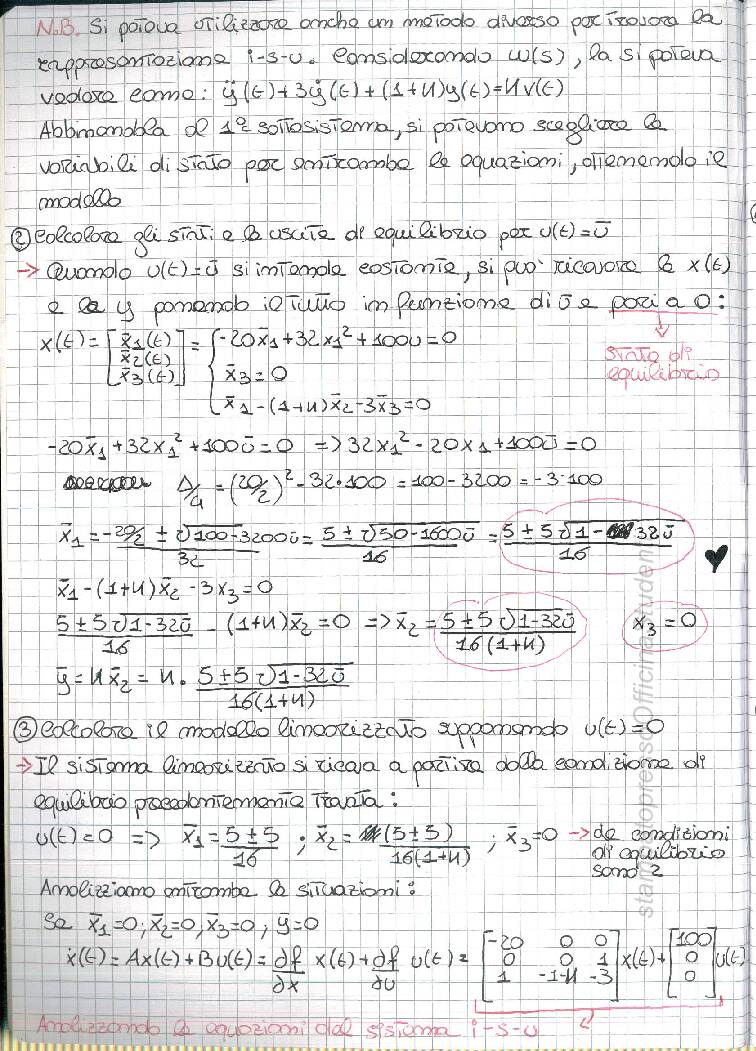 N.B. Si poteva utilizzare anche un metodo diverso per trovare la
rappresentazione i-s-u. Considerando W(s), la si poteva
vedere come: ÿ(t)+3ẏ(t)+(1+K)y(t)=Kv(t)
Abbinandola al 1° sottosistema, si potevano scegliere le
variabili di stato per entrambe le equazioni, ottenendo il
modello
② Calcolare gli stati e le uscite di equilibrio per u(t)=ū
→ Quando u(t)=ū si intende costante, si può ricavare le x(t)
e la y ponendo il tutto in funzione di ū e pari a 0:
x(t)= [x̄1(t) x̄2(t) x̄3(t)] = { -20x̄1+32x1²+100u=0
x̄3=0
x̄1-(1+K)x̄2-3x̄3=0
stato di
equilibrio
-20x̄1+32x1²+100ū=0 => 32x1²-20x1+100ū=0
Δ/4=(20/2)²-32·100=100-3200=-3·100
x̄1=-20/2 ± √100-3200ū / 32 = 5±√50-1600ū / 16 = 5±5√1-32ū / 16
x̄1-(1+K)x̄2-3x3=0
5±5√1-32ū / 16 -(1+K)x̄2=0 => x̄2= 5±5√1-32ū / 16(1+K) x̄3=0
ȳ=Kx̄2=K· 5±5√1-32ū / 16(1+K)
③ Calcolare il modello linearizzato supponendo u(t)=0
→ Il sistema linearizzato si ricava a partire dalla condizione di
equilibrio precedentemente tratta:
u(t)=0 => x̄1= 5±5 / 16 ; x̄2= (5±5) / 16(1+K) ; x̄3=0 → le condizioni
di equilibrio
sono 2
Analizziamo entrambe le situazioni:
Se x̄1=0, x̄2=0, x̄3=0, ȳ=0
ẋ(t)=Ax(t)+Bu(t)= ∂f/∂x x(t)+ ∂f/∂u u(t)= [-20 0 0
0 0 1
1 -1-K -3] x(t)+ [100 0 0] u(t)
Analizzando le equazioni del sistema i-s-u
stampatopressoOfficinaStudenti